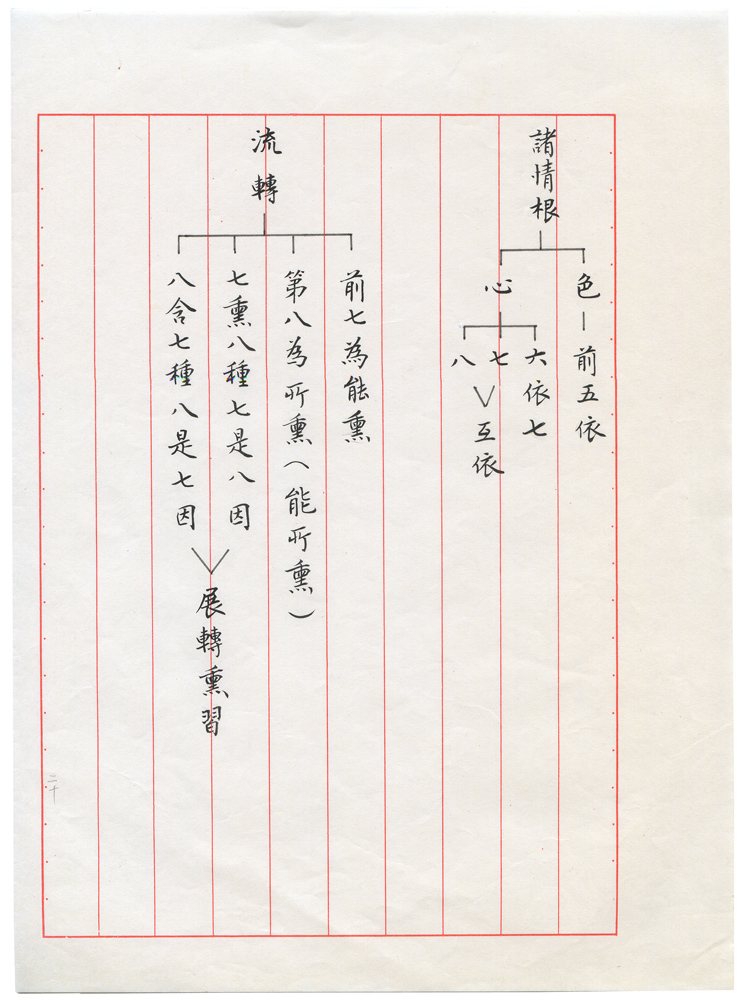 諸情根
色—前五依
心
六依七
七
八
互依
流轉
前七為能熏
第八為所熏（能所熏）
七熏八種七是八因
八含七種八是七因
展轉熏習
二十